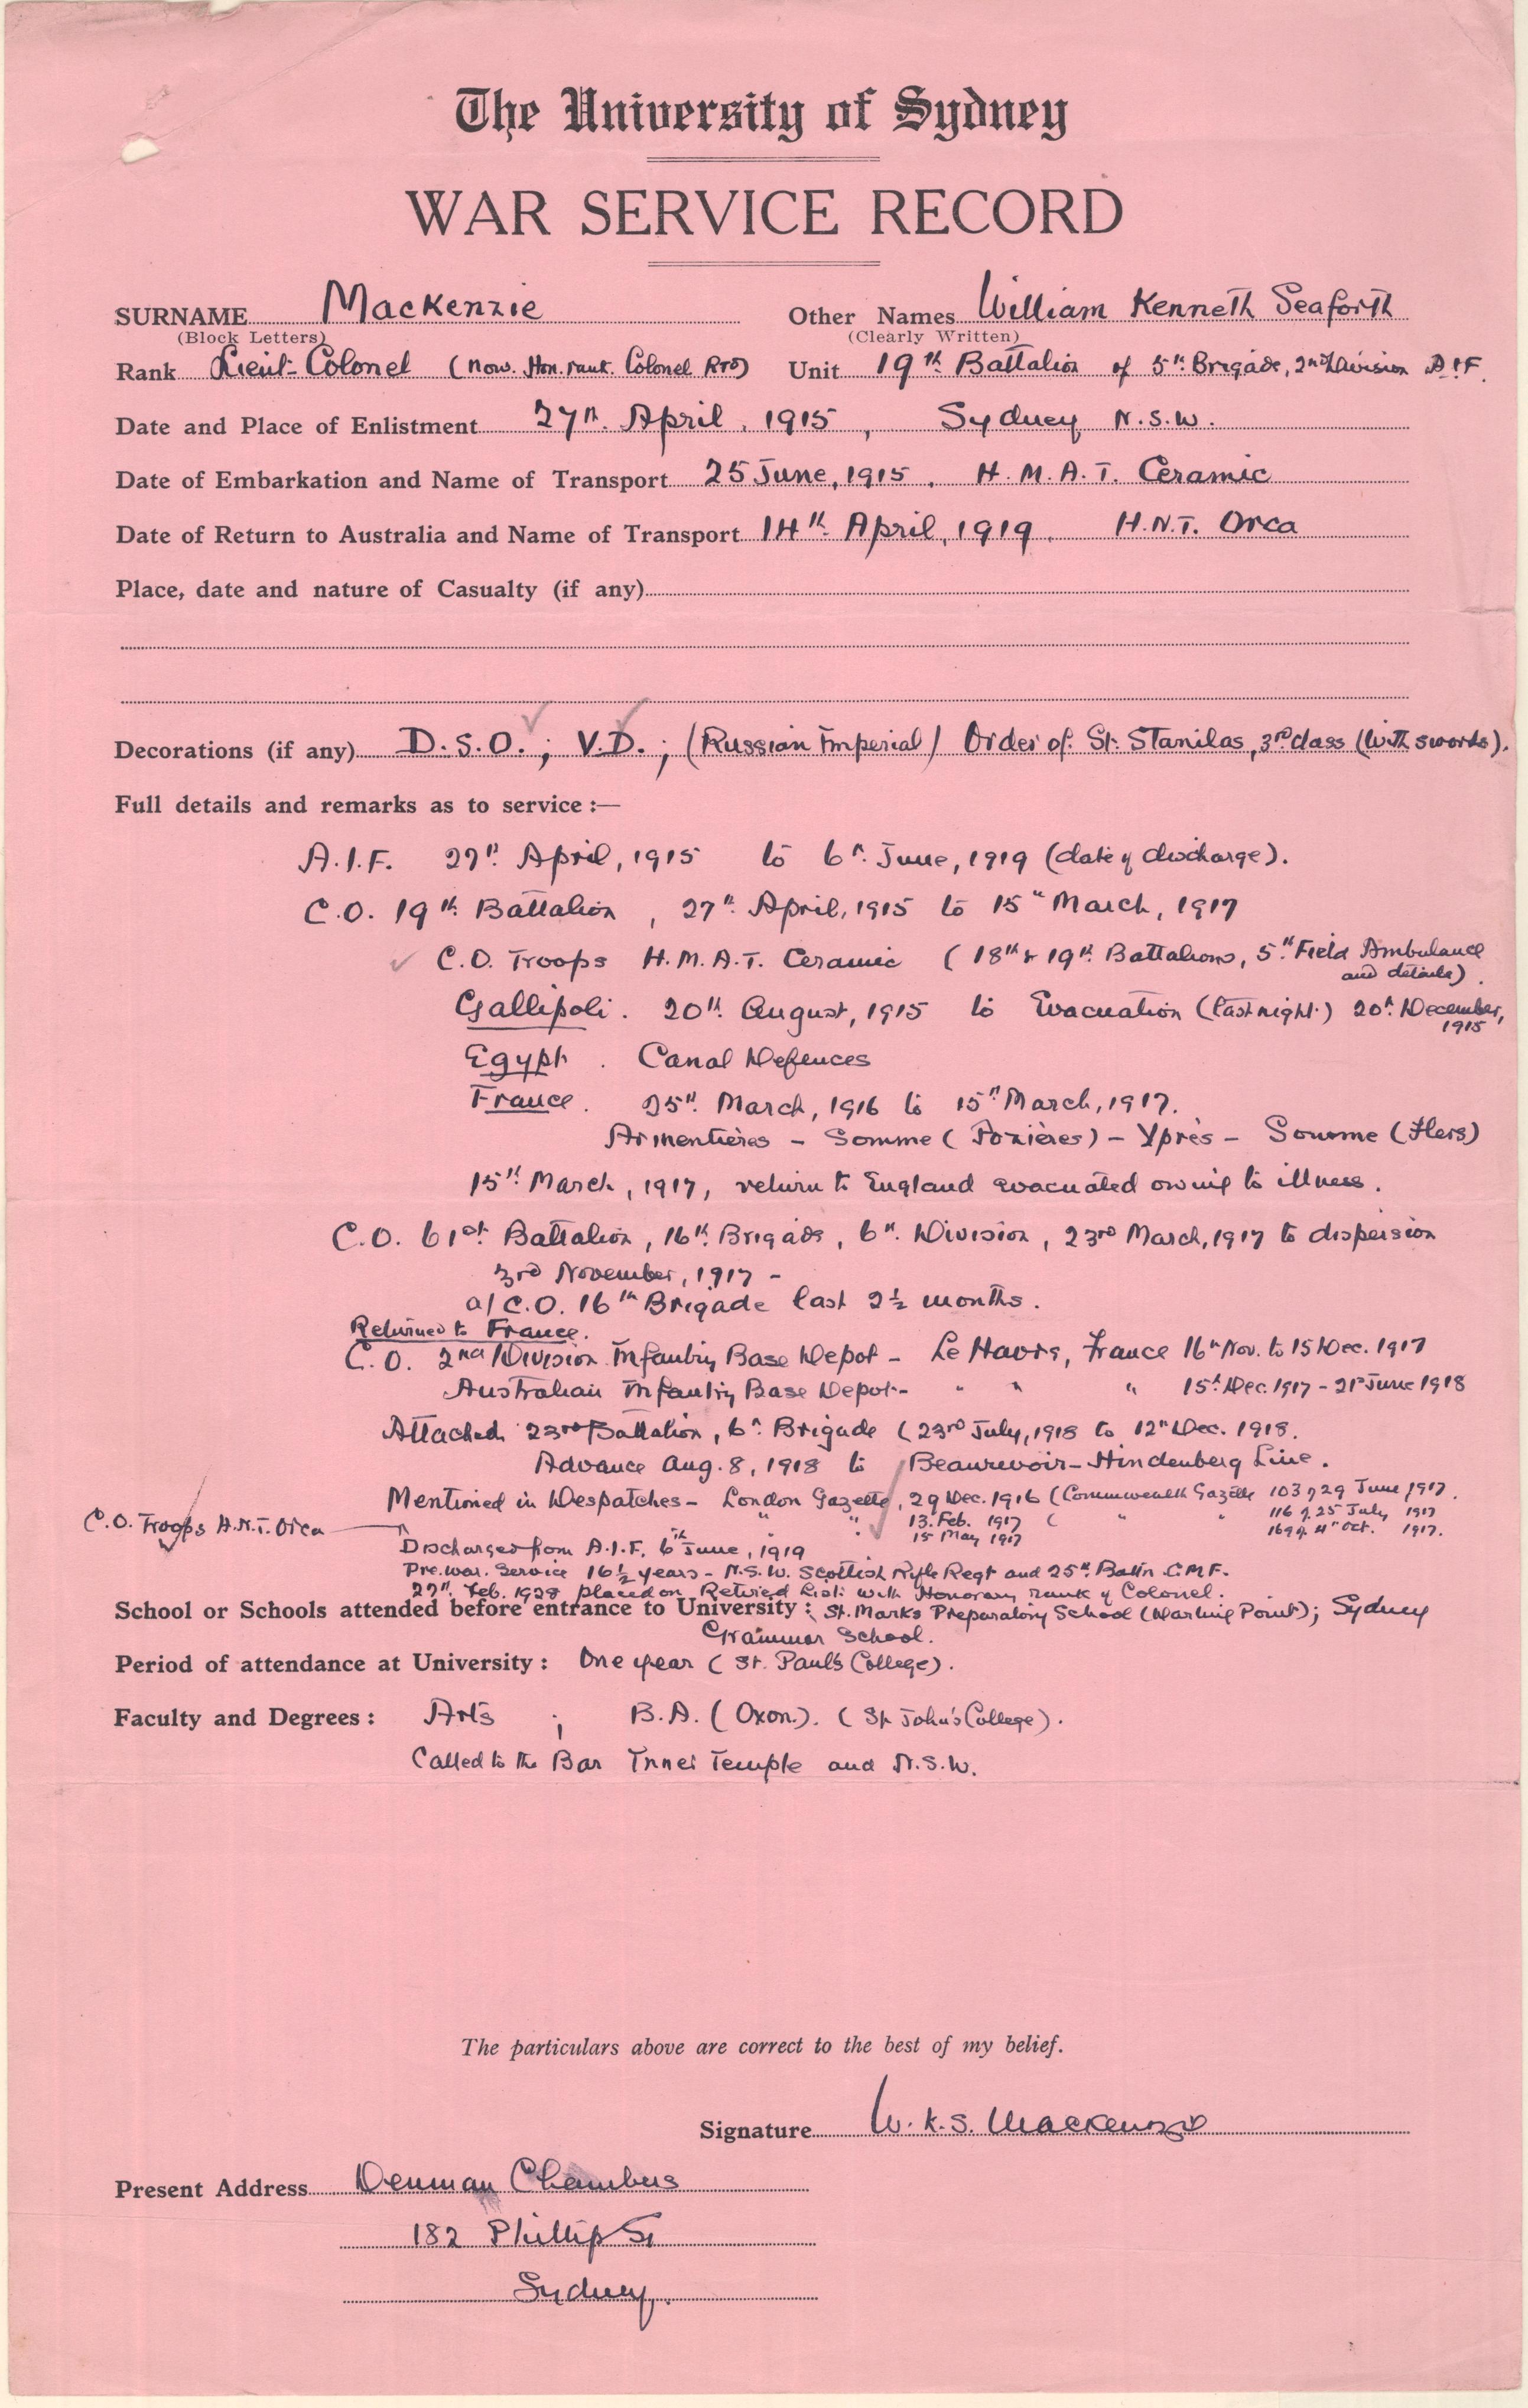 The University of Sydney
WAR SERVICE RECORD
SURNAME Mackenzie Other Names William Kenneth Seaforth
(Block Letters) (Clearly Written)
Rank Lieut-Colonel (now. Hon. rank. Colonel RTD) Unit 19th Battalion of 5th Brigade, 2nd Division A.I.F.
Date and Place of Enlistment 27th April, 1915, Sydney N.S.W.
Date of Embarkation and Name of Transport 25 June, 1915, H.M.A.T. Ceramic
Date of Return to Australia and Name of Transport 14th April, 1919. H.N.T. Orca
Place, date and nature of Casualty (if any)
Decorations (if any) D.S.O.; V.D.; (Russian Imperial) Order of St. Stanilas, 3rd class (with swords).
Full details and remarks as to service:—
A.I.F. 27th April, 1915 to 6th June, 1919 (date of discharge).
C.O. 19th Battalion, 27th April, 1915 to 15th March, 1917
C.O. Troops H.M.A.T. Ceramic (18th & 19th Battalions, 5th Field Ambulance
and details).
Gallipoli. 20th August, 1915 to Evacuation (last night) 20th December,
1915
Egypt. Canal Defences
France. 25th March, 1916 to 15th March, 1917.
Armentières - Somme (Pozières) - Yprès - Somme (Flers)
15th March, 1917, return to England evacuated owing to illness.
C.O. 61st Battalion, 16th Brigade, 6th Division, 23rd March, 1917 to dispersion
3rd November, 1917 -
a/C.O. 16th Brigade last 2½ months.
Returned to France.
C.O. 2nd Division Infantry Base Depot - Le Havre, France 16th Nov. to 15 Dec. 1917
Australian Infantry Base Depot - " " " 15th Dec. 1917 - 21st June 1918
Attached 23rd Battalion, 6th Brigade (23rd July, 1918 to 12th Dec. 1918.
Advance Aug. 8, 1918 to Beaurevoir - Hindenberg Line.
Mentioned in Despatches - London Gazette, 29 Dec. 1916 (Commonwealth Gazette 103 of 29 June 1917.
" " 13. Feb. 1917 ( " " 116 of 25 July 1917
C.O. Troops H.N.T. Orca " " 15 May 1917 169 of 4th Oct. 1917.
Discharged from A.I.F. 6th June, 1919
Pre. war. Service 16½ years - N.S.W. Scottish Rifle Regt and 25th Battn C.M.F.
27th Feb. 1928 placed on Retired List with Honorary rank of Colonel.
School or Schools attended before entrance to University: St. Marks Preparatory School (Darling Point); Sydney
Grammar School.
Period of attendance at University: One year (St. Paul's College).
Faculty and Degrees: Arts; B.A. (Oxon.). (St John's College).
Called to the Bar Inner Temple and N.S.W.
The particulars above are correct to the best of my belief.
Signature W.K.S. Mackenzie
Present Address Denman Chambers
182 Phillip St
Sydney.